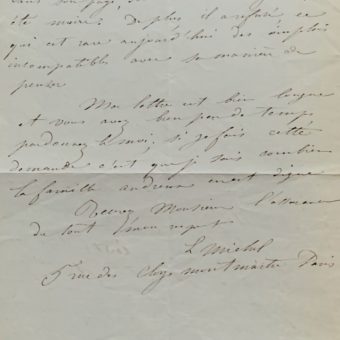 été moins ; De plus il a refusé ce
qui est rare aujourd'hui des emplois
incompatible avec sa manière de
penser
Ma lettre est bien longue
et vous avez bien peu de temps
pardonnez le moi, si je fais cette
demande c'est que je sais combien
la famille andrieux en est digne
Recevez Monsieur l'assurance
de tout mon respect
L Michel
5 rue des Cloys montmartre Paris